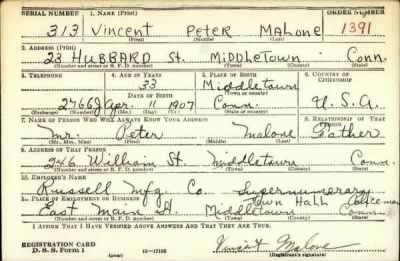 SERIAL NUMBER 1. NAME (Print) ORDER NUMBER
313 Vincent Peter Malone 1391
(First) (Middle) (Last)
2. ADDRESS (Print)
23 HUBBARD St. MIDDLETOWN Conn.
(Number and street or R. F. D. number) (Town) (County) (State)
3. TELEPHONE 4. AGE IN YEARS 5. PLACE OF BIRTH 6. COUNTRY OF CITIZENSHIP
33 Middletown
DATE OF BIRTH (Town or county)
2766J Apr. 11 1907 Conn. U.S.A.
(Exchange) (Number) (Mo.) (Day) (Yr.) (State or country)
7. NAME OF PERSON WHO WILL ALWAYS KNOW YOUR ADDRESS 8. RELATIONSHIP OF THAT PERSON
Mr. Peter Malone Father
(Mr., Mrs., Miss) (First) (Middle) (Last)
9. ADDRESS OF THAT PERSON
246 William St. Middletown Conn.
(Number and street or R. F. D. number) (Town) (County) (State)
10. EMPLOYER'S NAME
Russell Mfg. Co. Supernumerary
11. PLACE OF EMPLOYMENT OR BUSINESS Town Hall Policeman
East Main St. Middletown Conn.
(Number and street or R. F. D. number) (Town) (County) (State)
I AFFIRM THAT I HAVE VERIFIED ABOVE ANSWERS AND THAT THEY ARE TRUE.
REGISTRATION CARD
D. S. S. Form 1 (over) Vincent Malone
(Registrant's signature)